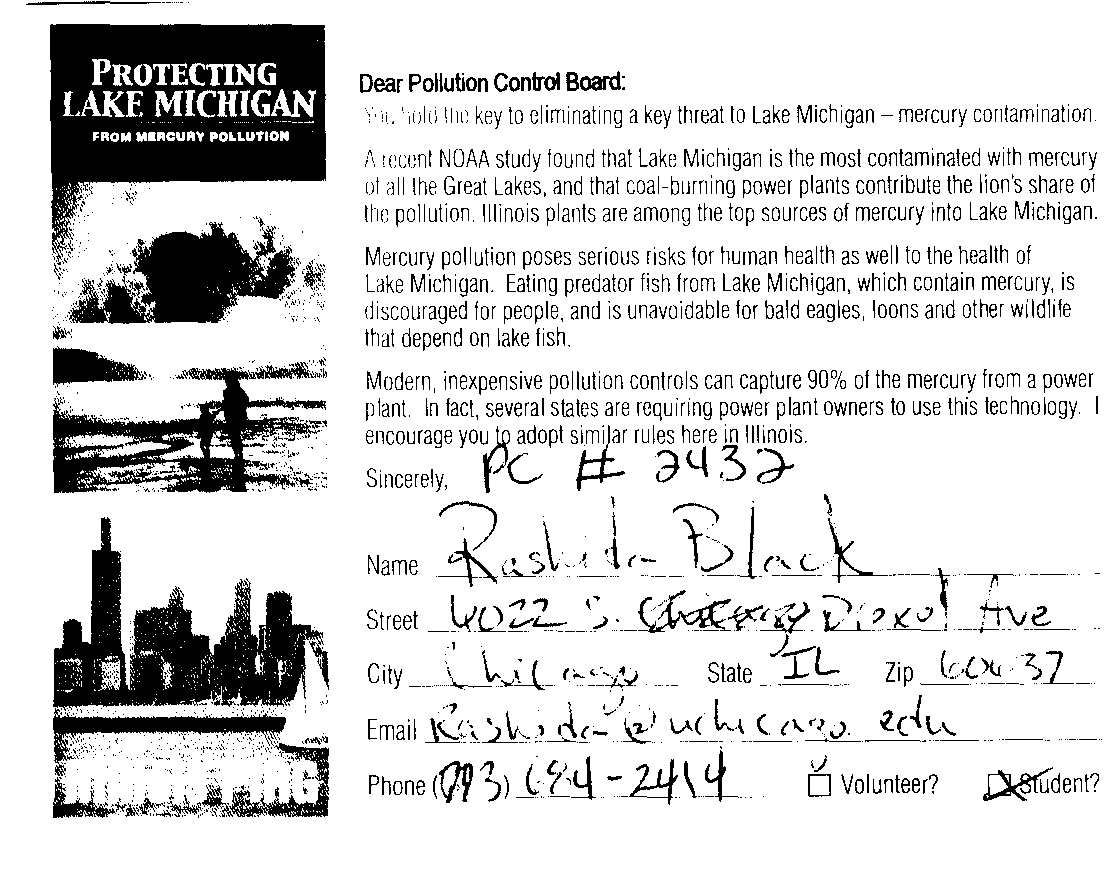 PROTECTING
LAKE MICHIGAN
FROM MERCURY POLLUTION
Dear Pollution Control Board:
You hold the key to eliminating a key threat to Lake Michigan – mercury contamination.
A recent NOAA study found that Lake Michigan is the most contaminated with mercury
of all the Great Lakes, and that coal-burning power plants contribute the lion's share of
the pollution. Illinois plants are among the top sources of mercury into Lake Michigan.
Mercury pollution poses serious risks for human health as well to the health of
Lake Michigan. Eating predator fish from Lake Michigan, which contain mercury, is
discouraged for people, and is unavoidable for bald eagles, loons and other wildlife
that depend on lake fish.
Modern, inexpensive pollution controls can capture 90% of the mercury from a power
plant. In fact, several states are requiring power plant owners to use this technology. I
encourage you to adopt similar rules here in Illinois.
Sincerely, PC # 2432
Name Rashida Black
Street 6022 S. Drexel Ave
City Chicago State IL Zip 60637
Email Rashida@uchicago.edu
Phone (773) 684-2414 Volunteer? Student?